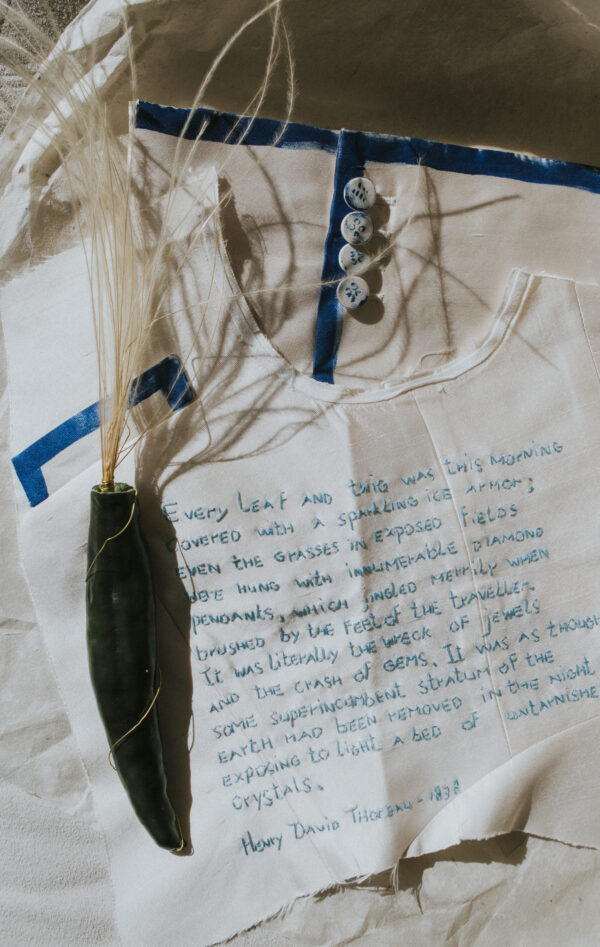 Every Leaf and twig was this morning
covered with a sparkling ice armor;
even the grasses in exposed fields
were hung with innumerable diamond
pendants, which jingled merrily when
brushed by the feet of the traveller.
It was literally the wreck of jewels
and the crash of gems. It was as though
some superincumbent stratum of the
earth had been removed in the night
exposing to light a bed of untarnishe
crystals.
Henry David Thoreau - 1838